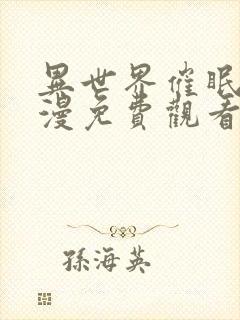 異世界催眠
漫免費觀看
孫海英